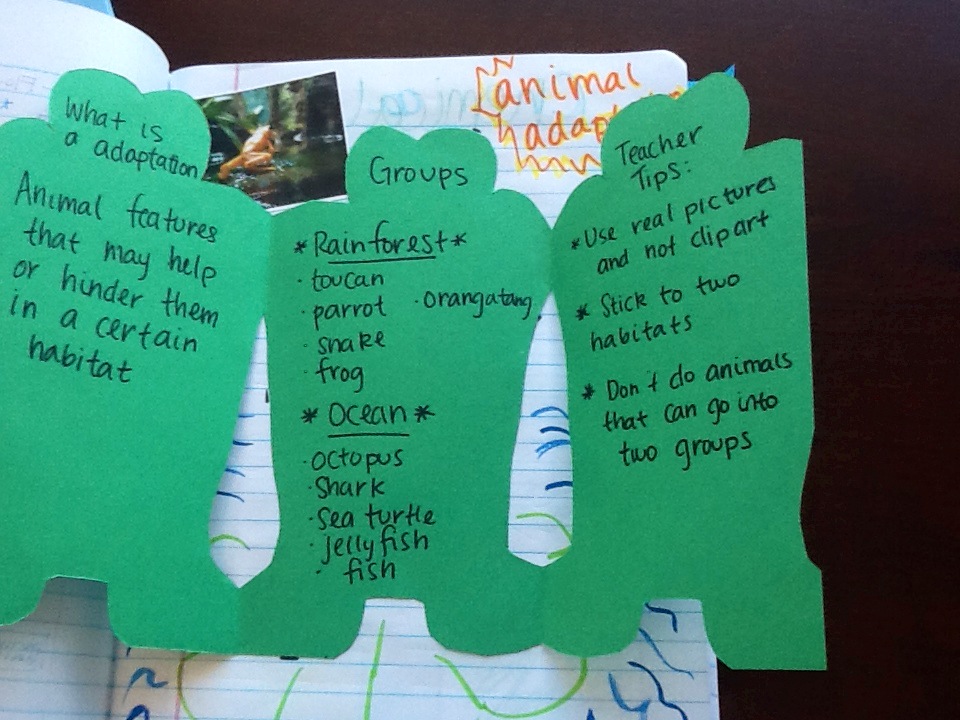 animal
adap
What is
a adaptation
Animal features
that may help
or hinder them
in a certain
habitat
Groups
*Rainforest*
·toucan
·parrot ·orangatang
·snake
·frog
*Ocean*
·octopus
·Shark
·Sea turtle
·jellyfish
·fish
Teacher
Tips:
*Use real pictures
and not clipart
* Stick to two
habitats
* Don't do animals
that can go into
two groups